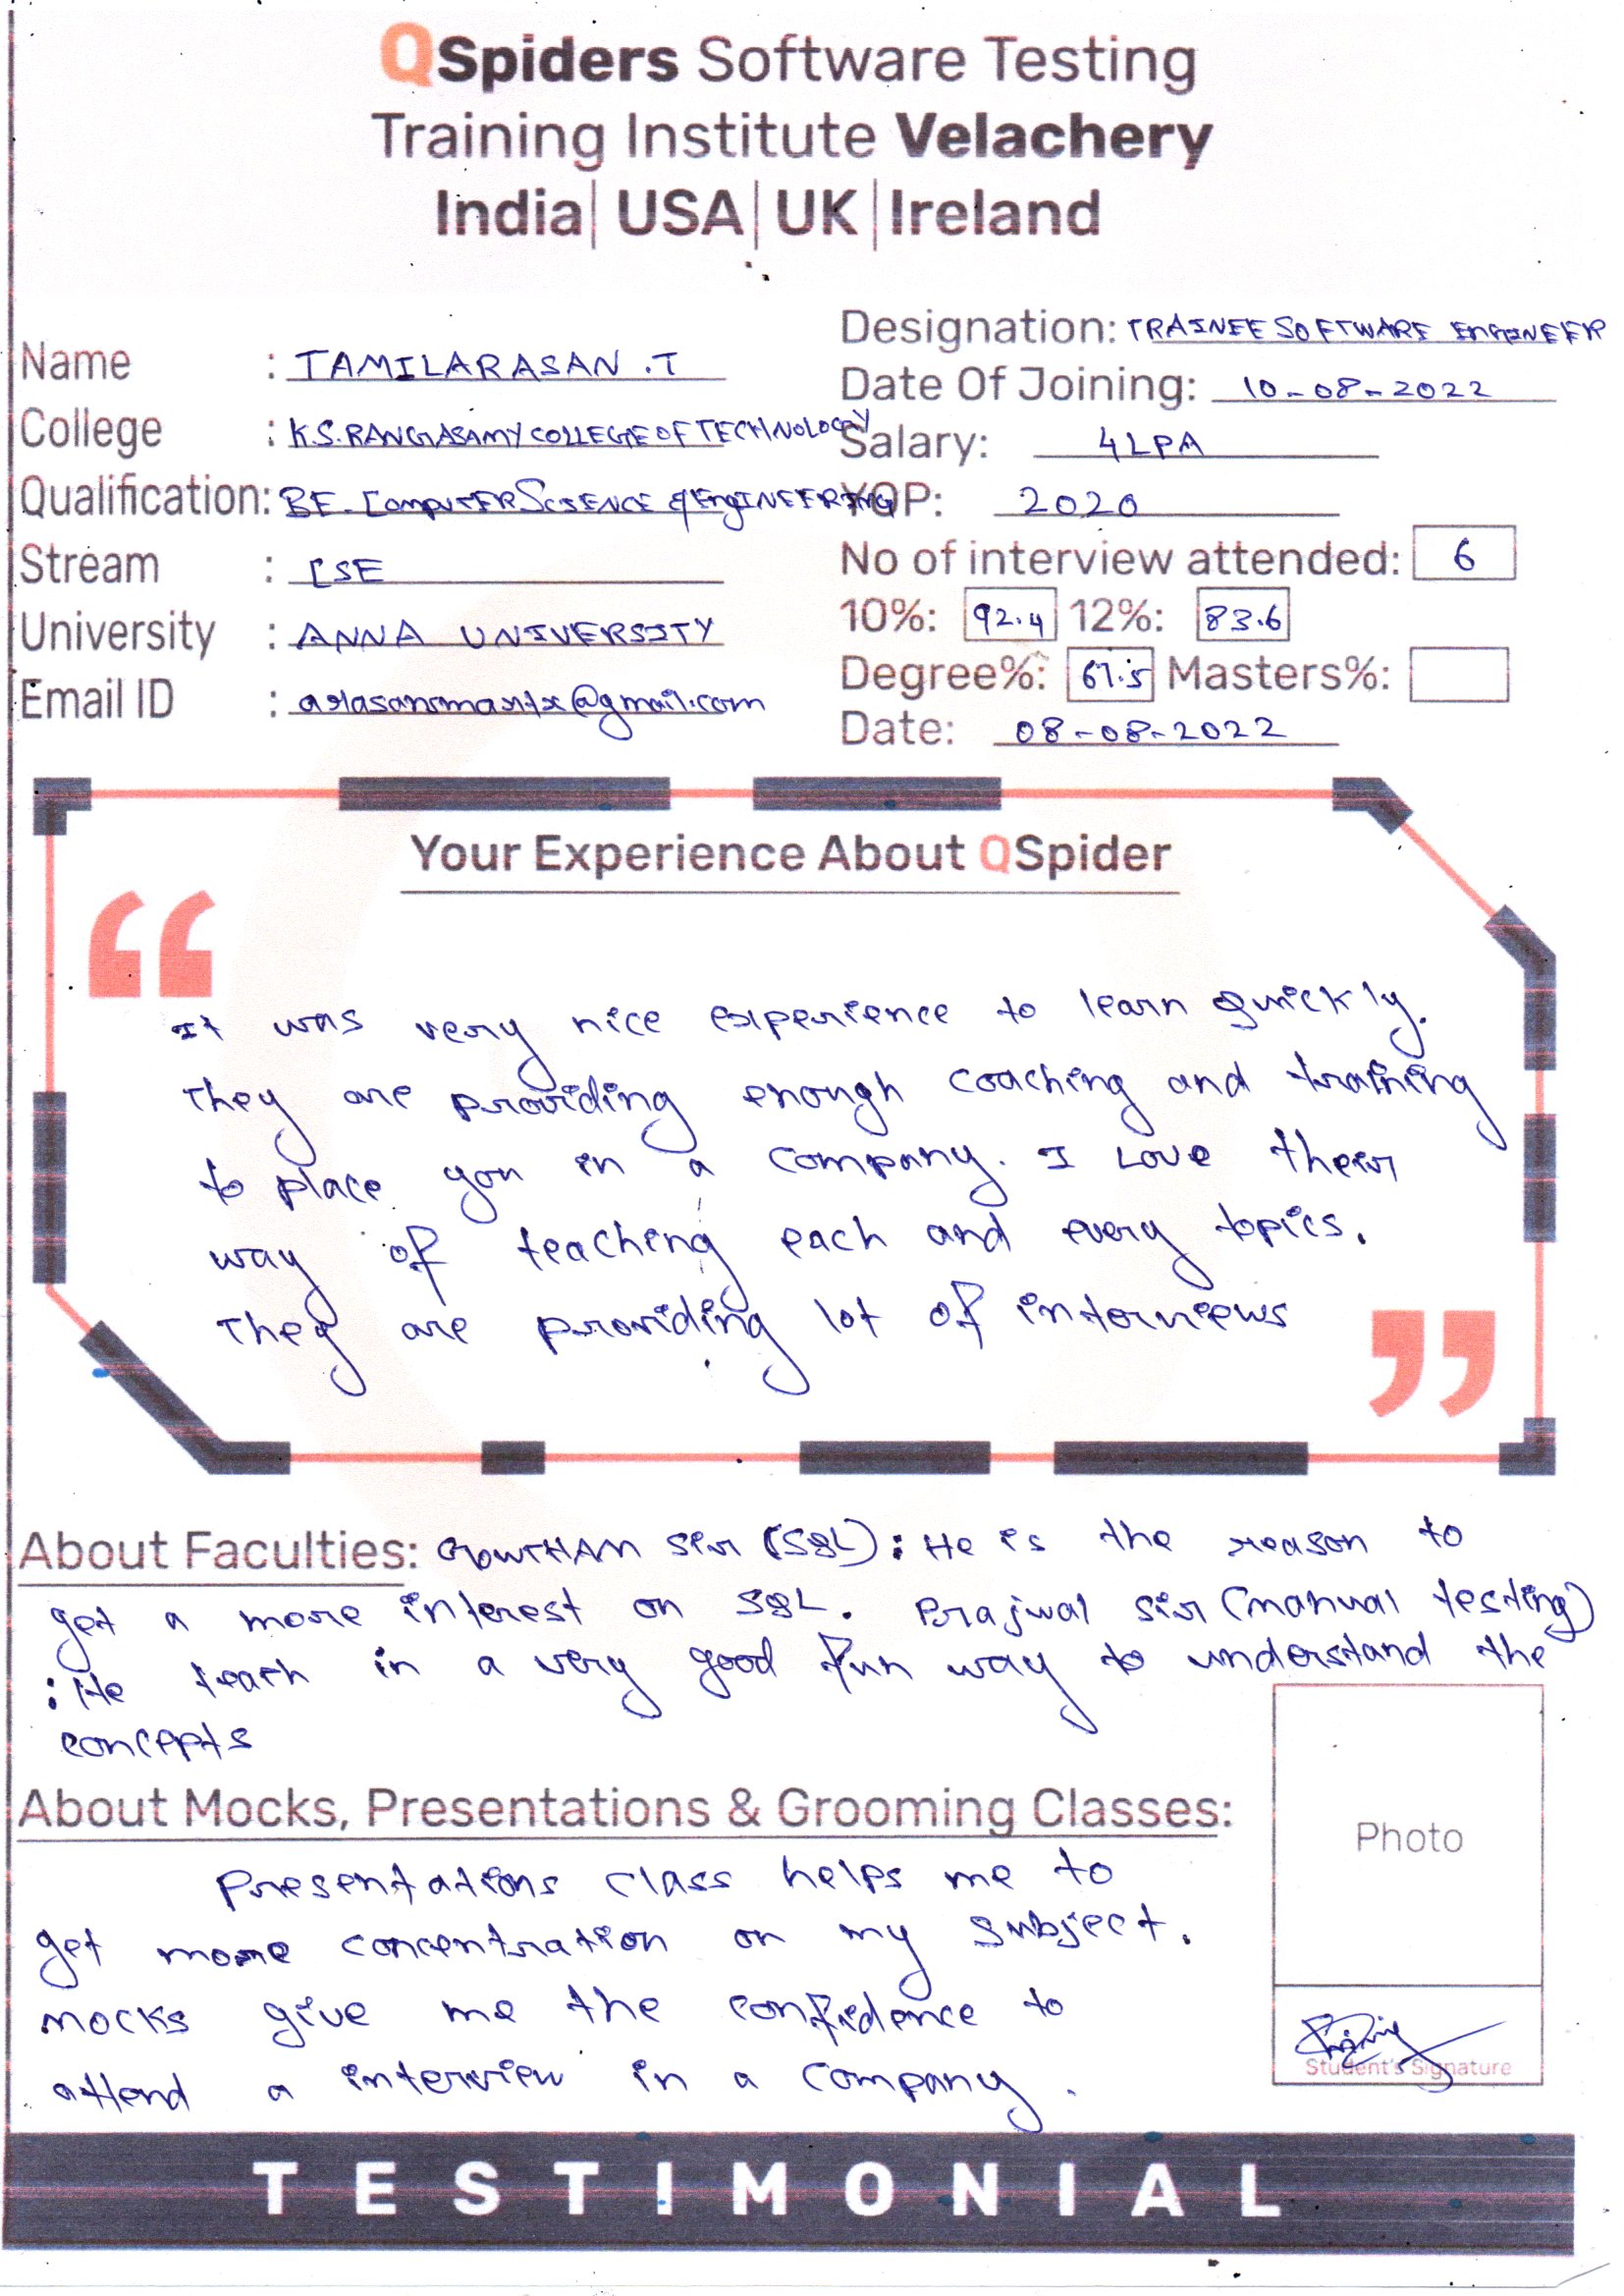 QSpiders Software Testing
Training Institute Velachery
India | USA | UK | Ireland
Name : TAMILARASAN .T
College : K.S.RANGASAMY COLLEGE OF TECHNOLOGY
Qualification: BE-COMPUTER SCIENCE & ENGINEERING
Stream : CSE
University : ANNA UNIVERSITY
Email ID : arasansmartx@gmail.com
Designation: TRAINEE SOFTWARE ENGINEER
Date Of Joining: 10-08-2022
Salary: 4LPA
YOP: 2020
No of interview attended: 6
10%: 92.4 12%: 83.6
Degree%: 67.5 Masters%:
Date: 08-08-2022
Your Experience About QSpider
It was very nice experience to learn quickly.
They are providing enough coaching and training
to place you in a company. I Love their
way of teaching each and every topics.
They are providing lot of interviews
About Faculties: GOWTHAM Sir (SQL): He is the reason to
get a more interest on SQL. Prajwal sir (manual testing)
: He teach in a very good fun way to understand the
concepts
About Mocks, Presentations & Grooming Classes:
Presentations class helps me to
get more concentration on my subject.
mocks give me the confidence to
attend a interview in a company.
Photo
Student's Signature
TESTIMONIAL